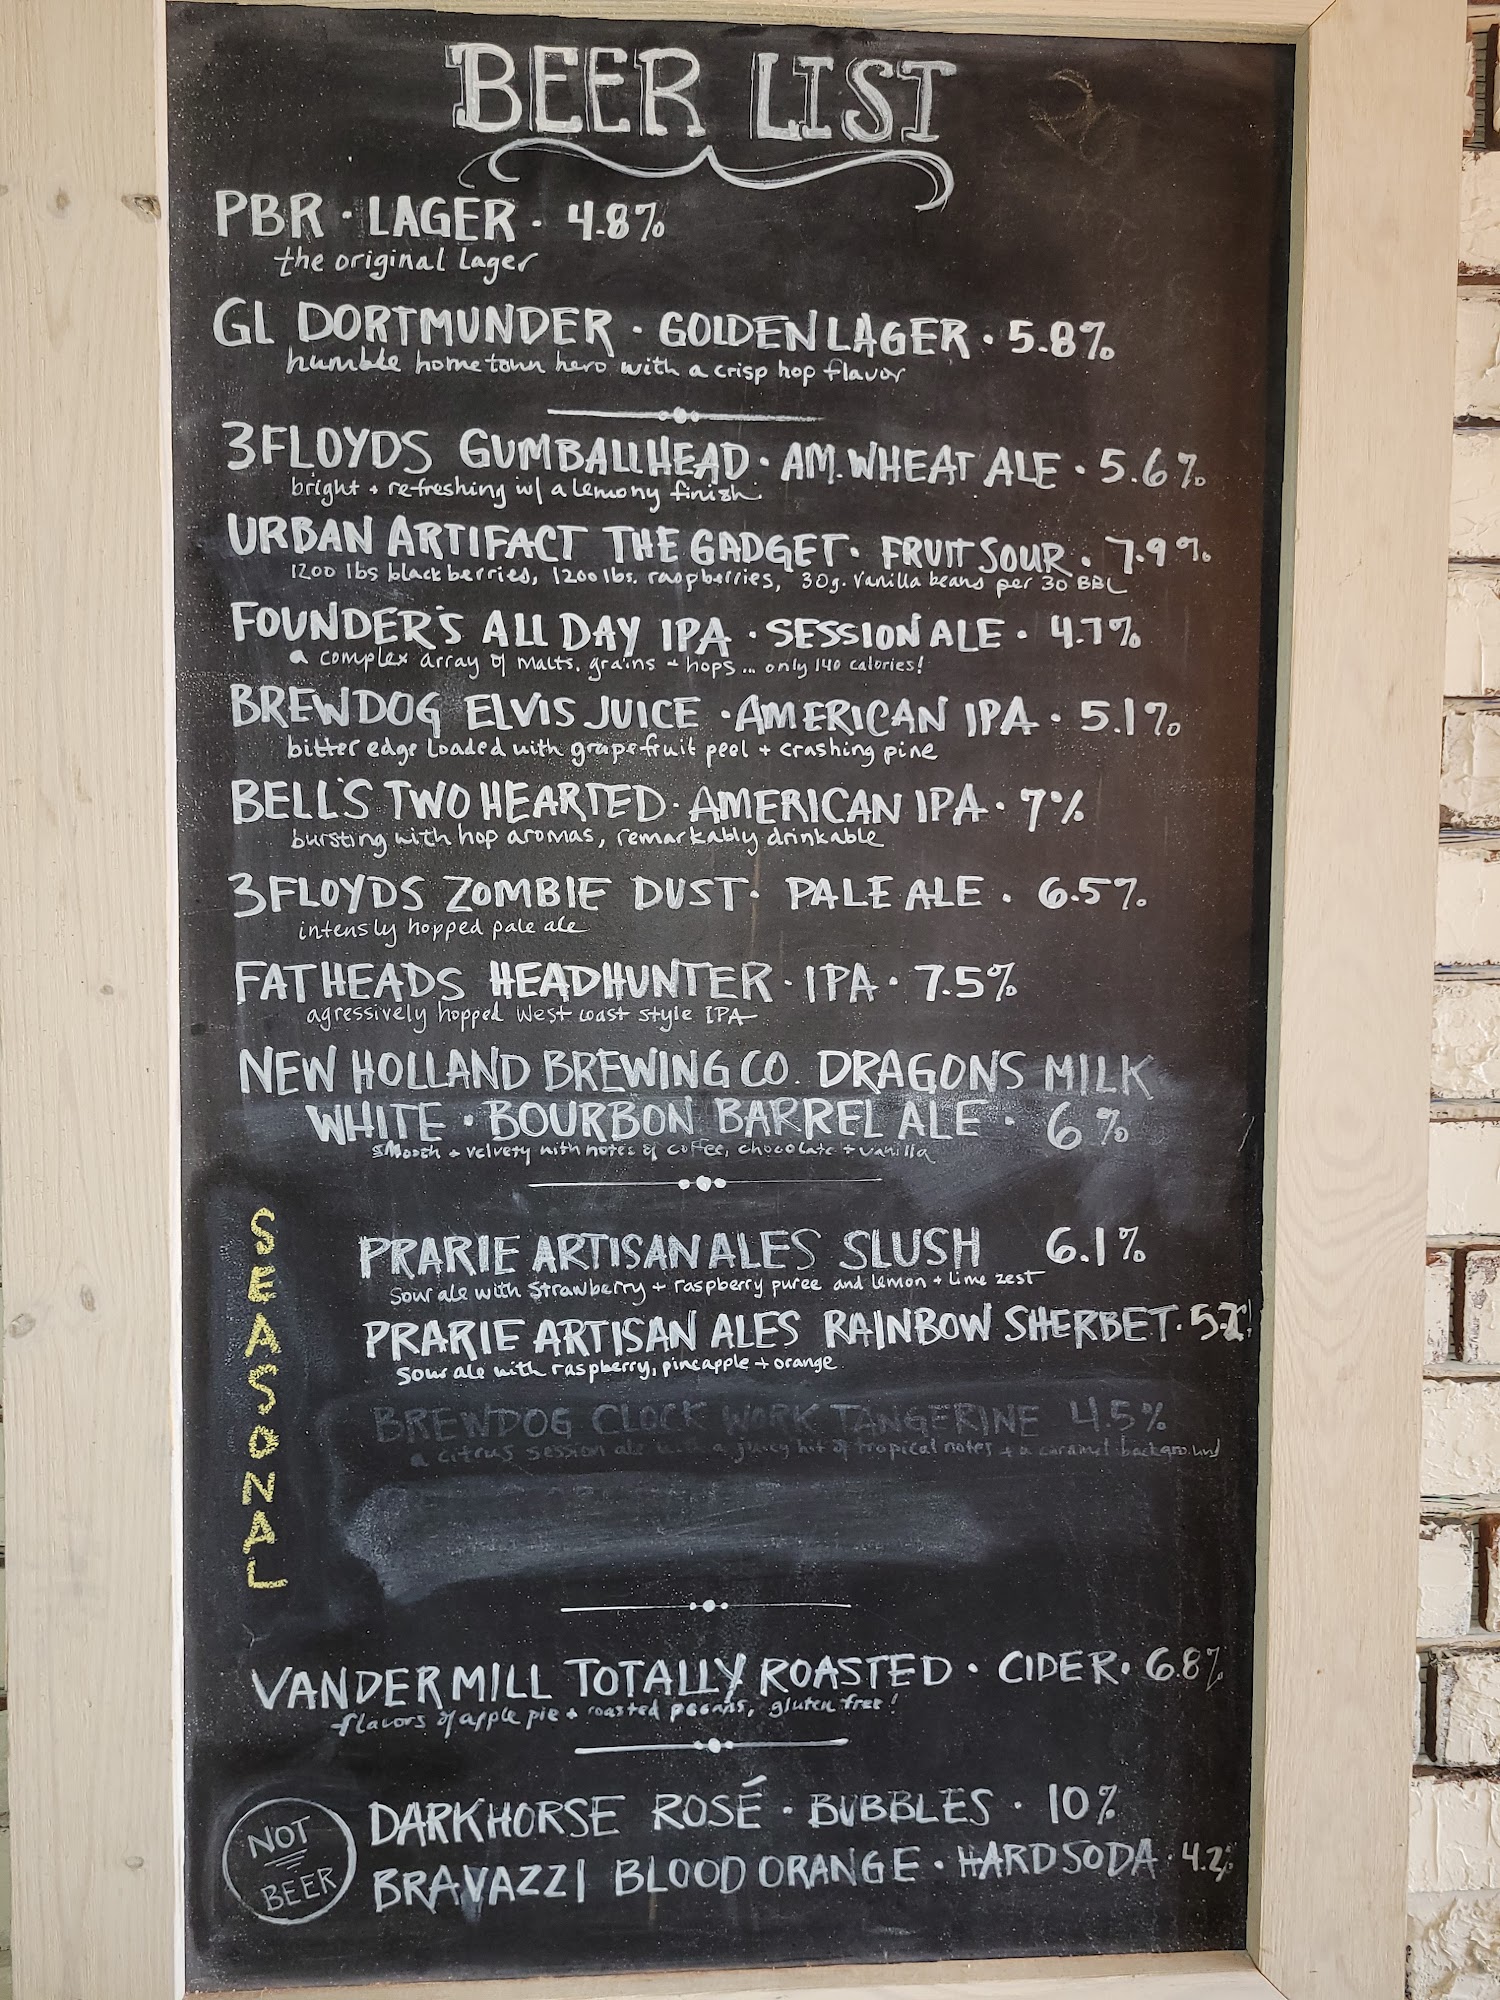 BEER LIST
PBR · LAGER · 4.8%
the original lager
GL DORTMUNDER · GOLDEN LAGER · 5.8%
humble hometown hero with a crisp hop flavor
3 FLOYDS GUMBALLHEAD · AM. WHEAT ALE · 5.6%
bright + refreshing w/ a lemony finish.
URBAN ARTIFACT THE GADGET · FRUIT SOUR · 7.9%
1200 lbs blackberries, 1200 lbs. raspberries, 30g. vanilla beans per 30 BBL
FOUNDER'S ALL DAY IPA · SESSION ALE · 4.7%
a complex array of malts, grains + hops ... only 140 calories!
BREWDOG ELVIS JUICE · AMERICAN IPA · 5.1%
bitter edge loaded with grapefruit peel + crashing pine
BELL'S TWO HEARTED · AMERICAN IPA · 7%
bursting with hop aromas, remarkably drinkable
3 FLOYDS ZOMBIE DUST · PALE ALE · 6.5%
intensly hopped pale ale
FATHEADS HEADHUNTER · IPA · 7.5%
agressively hopped West coast style IPA
NEW HOLLAND BREWING CO. DRAGONS MILK
WHITE · BOURBON BARREL ALE · 6%
smooth + velvety with notes of coffee, chocolate + vanilla
SEASONAL
PRARIE ARTISAN ALES SLUSH 6.1%
Sour ale with strawberry + raspberry puree and lemon + lime zest
PRARIE ARTISAN ALES RAINBOW SHERBET · 5.2%
Sour ale with raspberry, pineapple + orange
BREWDOG CLOCK WORK TANGERINE 4.5%
a citrus session ale a juicy hit of tropical notes + a caramel background
VANDERMILL TOTALLY ROASTED · CIDER · 6.8%
flavors of apple pie + roasted pecans, gluten free!
NOT
BEER
DARKHORSE ROSÉ · BUBBLES · 10%
BRAVAZZI BLOOD ORANGE · HARD SODA · 4.2%